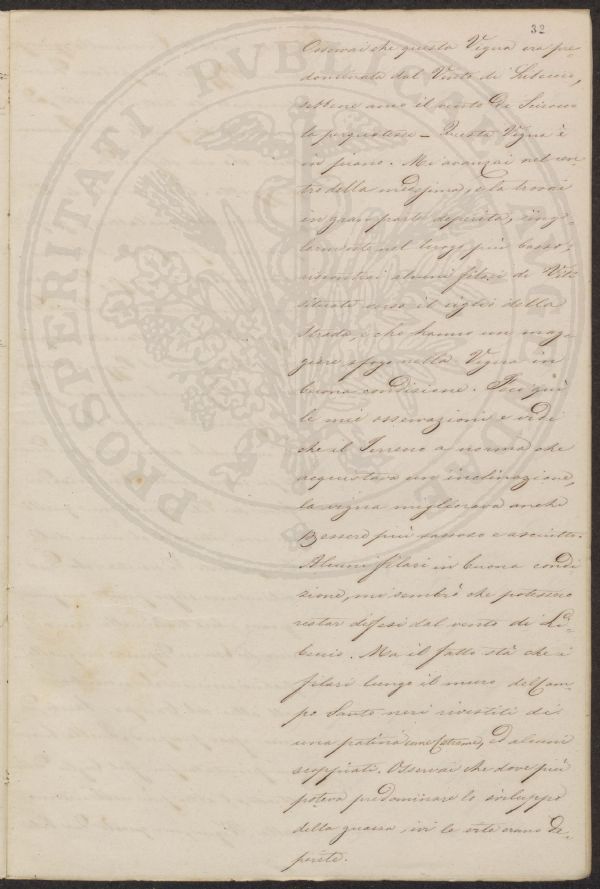 32
Osservai che questa Vigna era pre-
dominata dal Vento di Libeccio,
sebbene anco il vento di Scirocco
la perquotesse – Questa Vigna è
in piano. Mi avanzai nel cen-
tro della medesima, e la trovai
in gran parte deperita, singo-
larmente nel luogo più basso:
riscontrai alcuni filari di Viti
situate verso il ciglio della
Strada, che hanno un mag-
giore sfogo nella Vigna in
buona condizione. Feci quì
le mie osservazioni e vidi
che il Terreno a norma che
acquistava un inclinazione,
la vigna migliorava anche
essere più sassoso e asciutto.
Alcuni filari in buona condi
zione, mi sembrò che potessero
restar difesi dal vento di Li-
beccio. Ma il fatto stà che i
filari lungo il muro del Cam-
po Santo neri rivestiti di
una patina come Catrame, ed alcuni
scoppiati. Osservai che dove più
poteva predominare lo sviluppo
della guazza ivi le viti erano de-
perite.
PROSPERITATI PUBLICAE